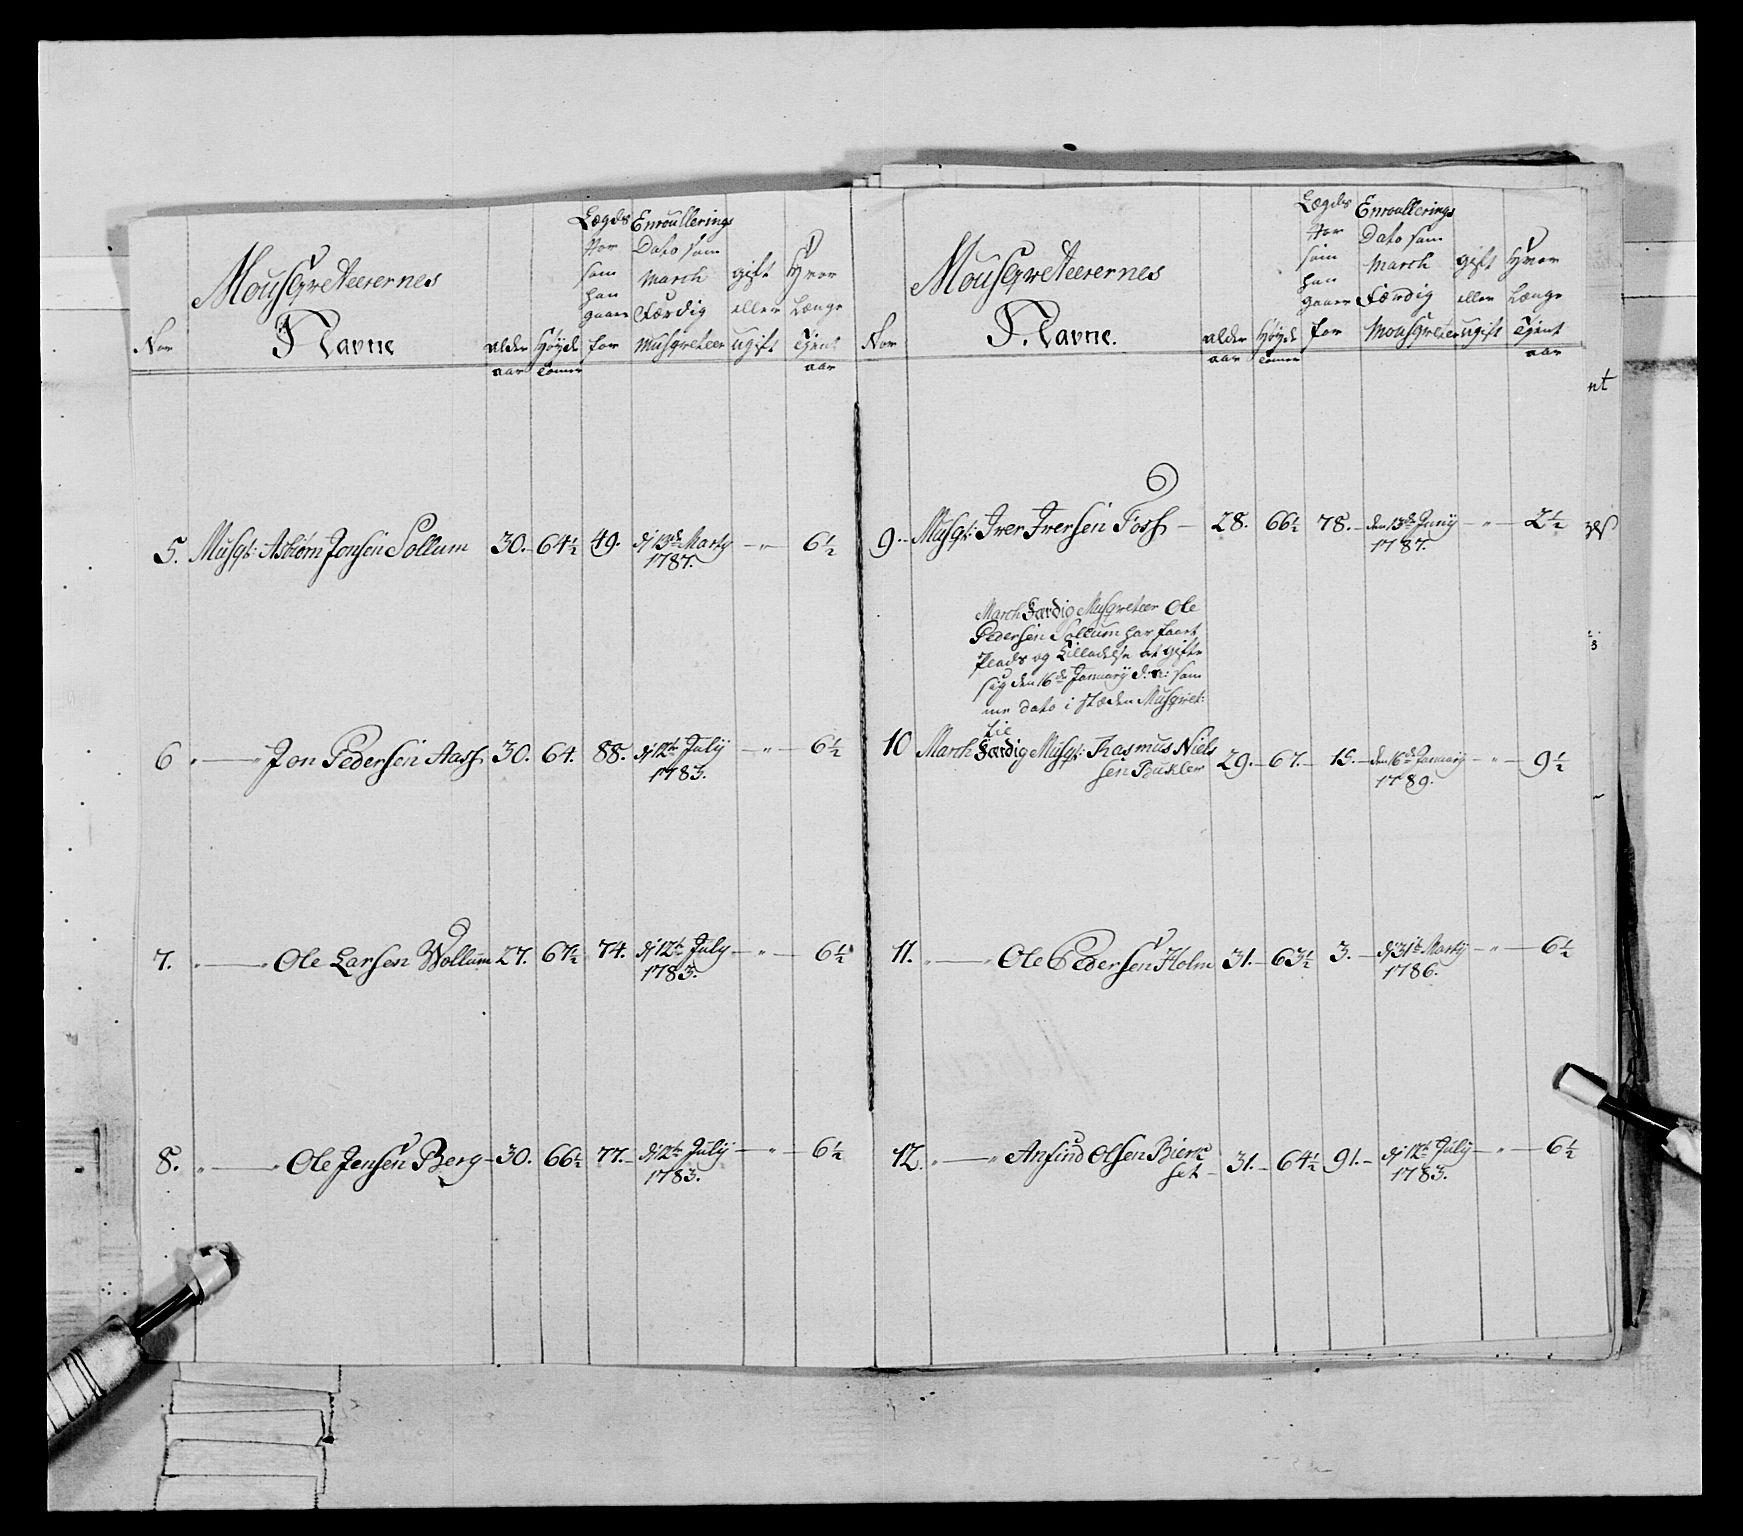 Mousqveteerernes
Navne
Nor
alder
aar
Høyde
Tomer
Lægds
Nor
som
han
gaaer
for
Enroullerings
Dato som
March
Færdig
Musqveteer
gift
eller
ugift
Hvor
Længe
Tjent
aar
5. Musqt: Asbiørn Jonsen Sollum 30. 64½ 49. dj 13de Marty 1787. — " — 6½
6 " — " Jon Pedersen Aass 30. 64. 88. dj 12te July 1783. — " — 6½
7. " — " Ole Larsen Wollum 27. 67½ 74. dj 12te July 1783. — " — 6½
8. " — " Ole Jensen Berg 30. 66½ 77. dj 12te July 1783. — " — 6½
Mousqveteerernes
Navne.
Nor
alder
aar
Høyde
Tomer
Lægds
Nor
som
han
gaaer
for
Enroullerings
Dato som
March
Færdig
Mousqveteer
gift
eller
ugift
Hvor
Længe
Tjent
aar
9. Musqt: Iver Iversen Foss — 28. 66½ 78. den 13de Juny 1787. — " — 2½
March Færdig Musqveteer Ole
Pedersen Sollum har faaet
Plads og Tilladelse at gifte
sig den 16de January d: a: sam
me dato i stæden Musqvet:
til
10 March Færdig Musqt: Rasmus Niel
sen Bukler 29. 67. 15. den 16de January 1789. — " — 9½
11. " — " Ole Pedersen Holm 31. 63½ 3. dj 31te Marty 1786. — " — 6½
12. " — " Anfind Olsen Bierk
set 31. 64½ 91. dj 12te July 1783. — " — 6½
nt